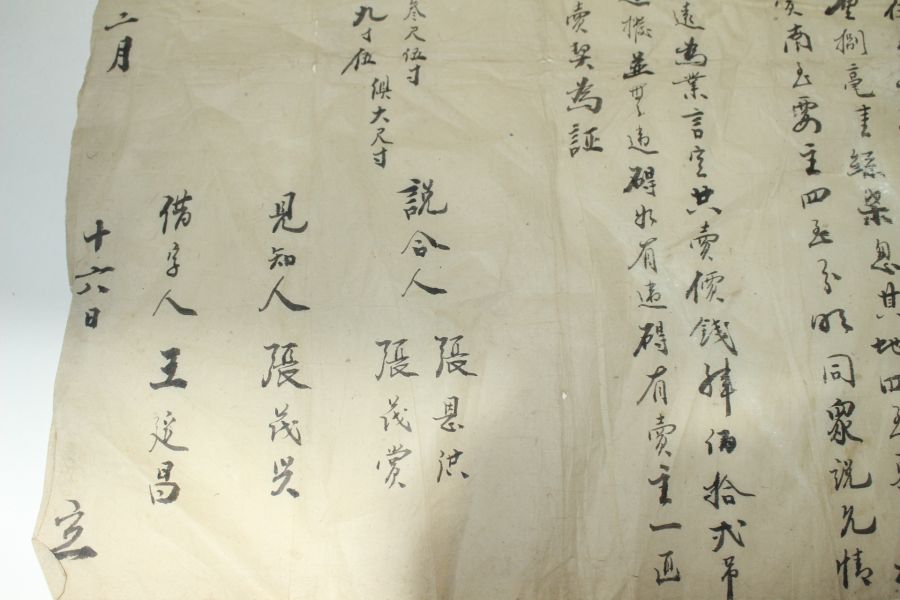 捌毫
絲 忽其地四至
南至要主四至分明同眾說允情
遠為業言定共賣價錢肆佰拾弍吊
並無違碍如有違碍有賣主一面
賣契為証
叁尺伍寸
九寸伍
俱大尺寸
說合人
張恩洪
張茂賞
見知人 張茂
借字人 王廷昌
二月 十六日 立